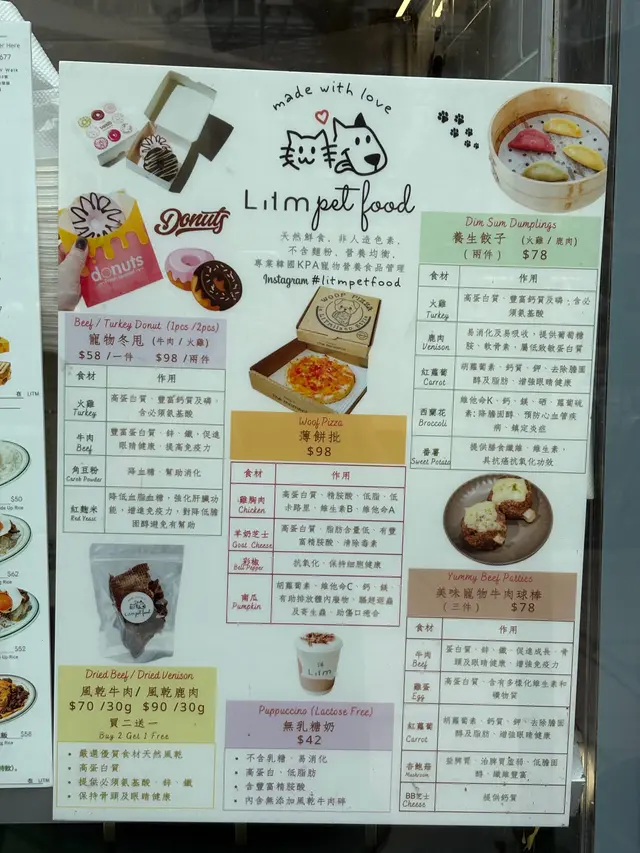 made with love
LITM pet food
天然鮮食、非人造色素、
不含麵粉、營養均衡、
專業韓國KPA寵物營養食品管理
Instagram #litmpetfood
Donuts
donuts
Beef / Turkey Donut (1pcs /2pcs)
寵物冬甩 (牛肉 / 火雞)
$58 /一件 $98 /兩件
食材 作用
火雞 Turkey 高蛋白質、豐富鈣質及磷、含必須氨基酸
牛肉 Beef 豐富蛋白質、鋅、鐵、促進眼睛健康、提高免疫力
角豆粉 Carob Powder 降血糖、幫助消化
紅麴米 Red Yeast 降低血脂血糖、強化肝臟功能、增進免疫力、對降低膽固醇避免有幫助
WOOF PIZZA
Woof Pizza
薄餅批
$98
食材 作用
雞胸肉 Chicken 高蛋白質、精胺酸、低脂、低卡路里、維生素B、維他命A
羊奶芝士 Goat Cheese 高蛋白質、脂肪含量低、有豐富精胺酸、清除毒素
彩椒 Bell Pepper 抗氧化、保持細胞健康
南瓜 Pumpkin 胡蘿蔔素、維他命C、鈣、鎂、有助排放體內廢物、腸道避蟲及寄生蟲、助傷口癒合
Dim Sum Dumplings
養生餃子 (火雞 / 鹿肉)
(兩件) $78
食材 作用
火雞 Turkey 高蛋白質、豐富鈣質及磷、含必須氨基酸
鹿肉 Venison 易消化及易吸收、提供葡萄糖胺、軟骨素、屬低致敏蛋白質
紅蘿蔔 Carrot 胡蘿蔔素、鈣質、鉀、去除膽固醇及脂肪、增強眼睛健康
西蘭花 Broccoli 維他命K、鈣、鎂、硒、蘿蔔硫素;降膽固醇、預防心血管疾病、鎮定炎症
番薯 Sweet Potato 提供膳食纖維、維生素、具抗癌抗氧化功效
Yummy Beef Patties
美味寵物牛肉球棒
(三件) $78
食材 作用
牛肉 Beef 蛋白質、鋅、鐵、促進成長、骨頭及眼睛健康、增強免疫力
雞蛋 Egg 高蛋白質、含有多樣化維生素和礦物質
紅蘿蔔 Carrot 胡蘿蔔素、鈣質、鉀、去除膽固醇及脂肪、增強眼睛健康
杏鮑菇 Mushroom 低膽固醇、纖維豐富
BB芝士 Cheese 提供鈣質
Dried Beef / Dried Venison
風乾牛肉/ 風乾鹿肉
$70 /30g $90 /30g
買二送一
Buy 2 Get 1 Free
• 嚴選優質食材天然風乾
• 高蛋白質
• 提供必須氨基酸、鋅、鐵
• 保持骨頭及眼睛健康
Puppuccino (Lactose Free)
無乳糖奶
$42
• 不含乳糖、易消化
• 高蛋白、低脂肪
• 含豐富精胺酸
• 內含無添加風乾牛肉碎
$50
$62
$52
$58
LITM